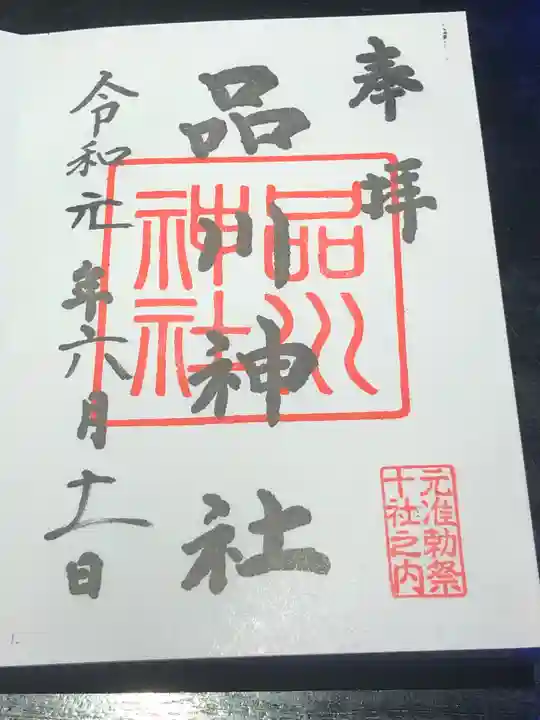 奉拝
品川神社
品川
神社
令和元年六月十一日
元准勅祭
十社之内